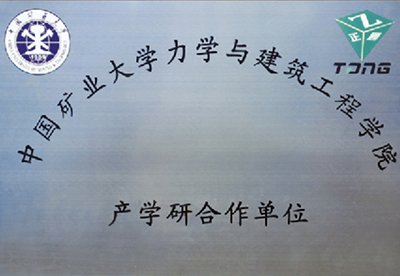 TONG
中国矿业大学力学与建筑工程学院
产学研合作单位